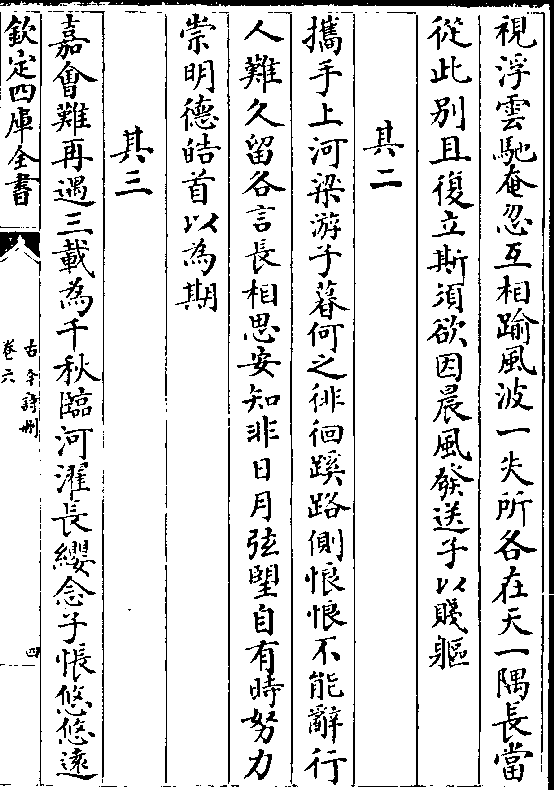 視浮雲馳奄忽互相踰風波一失所各在天一隅長當
從此別且復立斯須欲因晨風發送子以賤軀
其二
攜手上河梁游子暮何之徘徊蹊路側悢悢不能辭行
人難久留各言長相思安知非日月弦朢自有時努力
崇明德皓首以為期
其三
嘉會難再遇三載為千秋臨河濯長纓念子悵悠悠遠
欽定四庫全書
古今詩刪
卷六
四